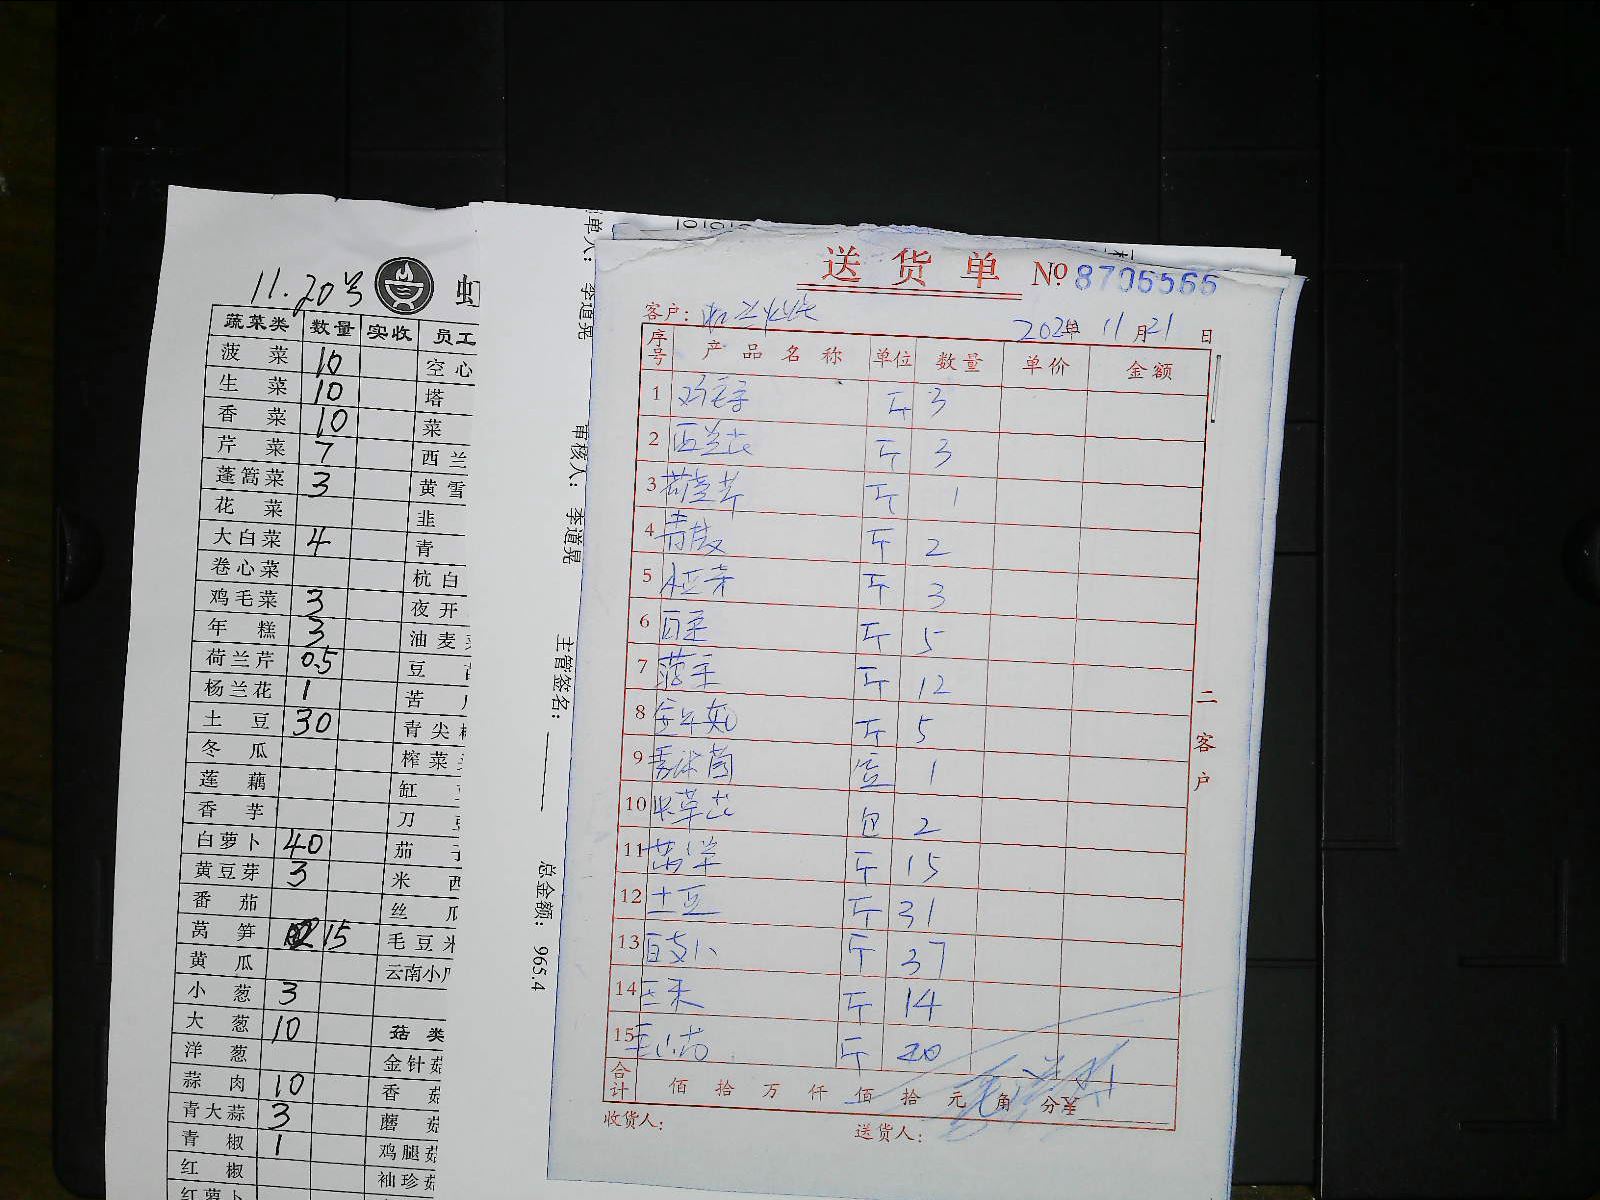 11.20号
蔬菜类 数量 实收 员工
菠菜 10 空心
生菜 10 塔
香菜 10 菜
芹菜 7 西兰
蓬蒿菜 3 黄雪
花菜 韭
大白菜 4 青
卷心菜 杭白
鸡毛菜 3 夜开
年糕 3 油麦
荷兰芹 0.5 豆
杨兰花 1 苦
土豆 30 青尖
冬瓜 榨菜
莲藕 缸
香芋 刀
白萝卜 40 茄
黄豆芽 3 米西
番茄 丝瓜
莴笋 15 毛豆米
黄瓜 云南小
小葱 3
大葱 10 菇类
洋葱 金针菇
蒜肉 10 香菇
青大蒜 3 蘑菇
青椒 1 鸡腿菇
红椒 袖珍菇
红萝卜
单人: 李道晃
审核人: 李道晃
主管签名:
总金额: 965.4
送货单 No 8706566
客户:
2021年 11月21日
序号 产品名称 单位 数量 单价 金额
1 鸡毛菜 斤 3
2 西兰花 斤 3
3 荷兰芹 斤 1
4 斤 2
5 斤 3
6 斤 5
7 菠菜 斤 12
8 斤 5
9 1
10 包 2
11 莴笋 斤 15
12 土豆 斤 31
13 白萝卜 斤 37
14 斤 14
15 斤 20
合计 佰拾万仟佰拾元角分¥
收货人: 送货人:
二客户